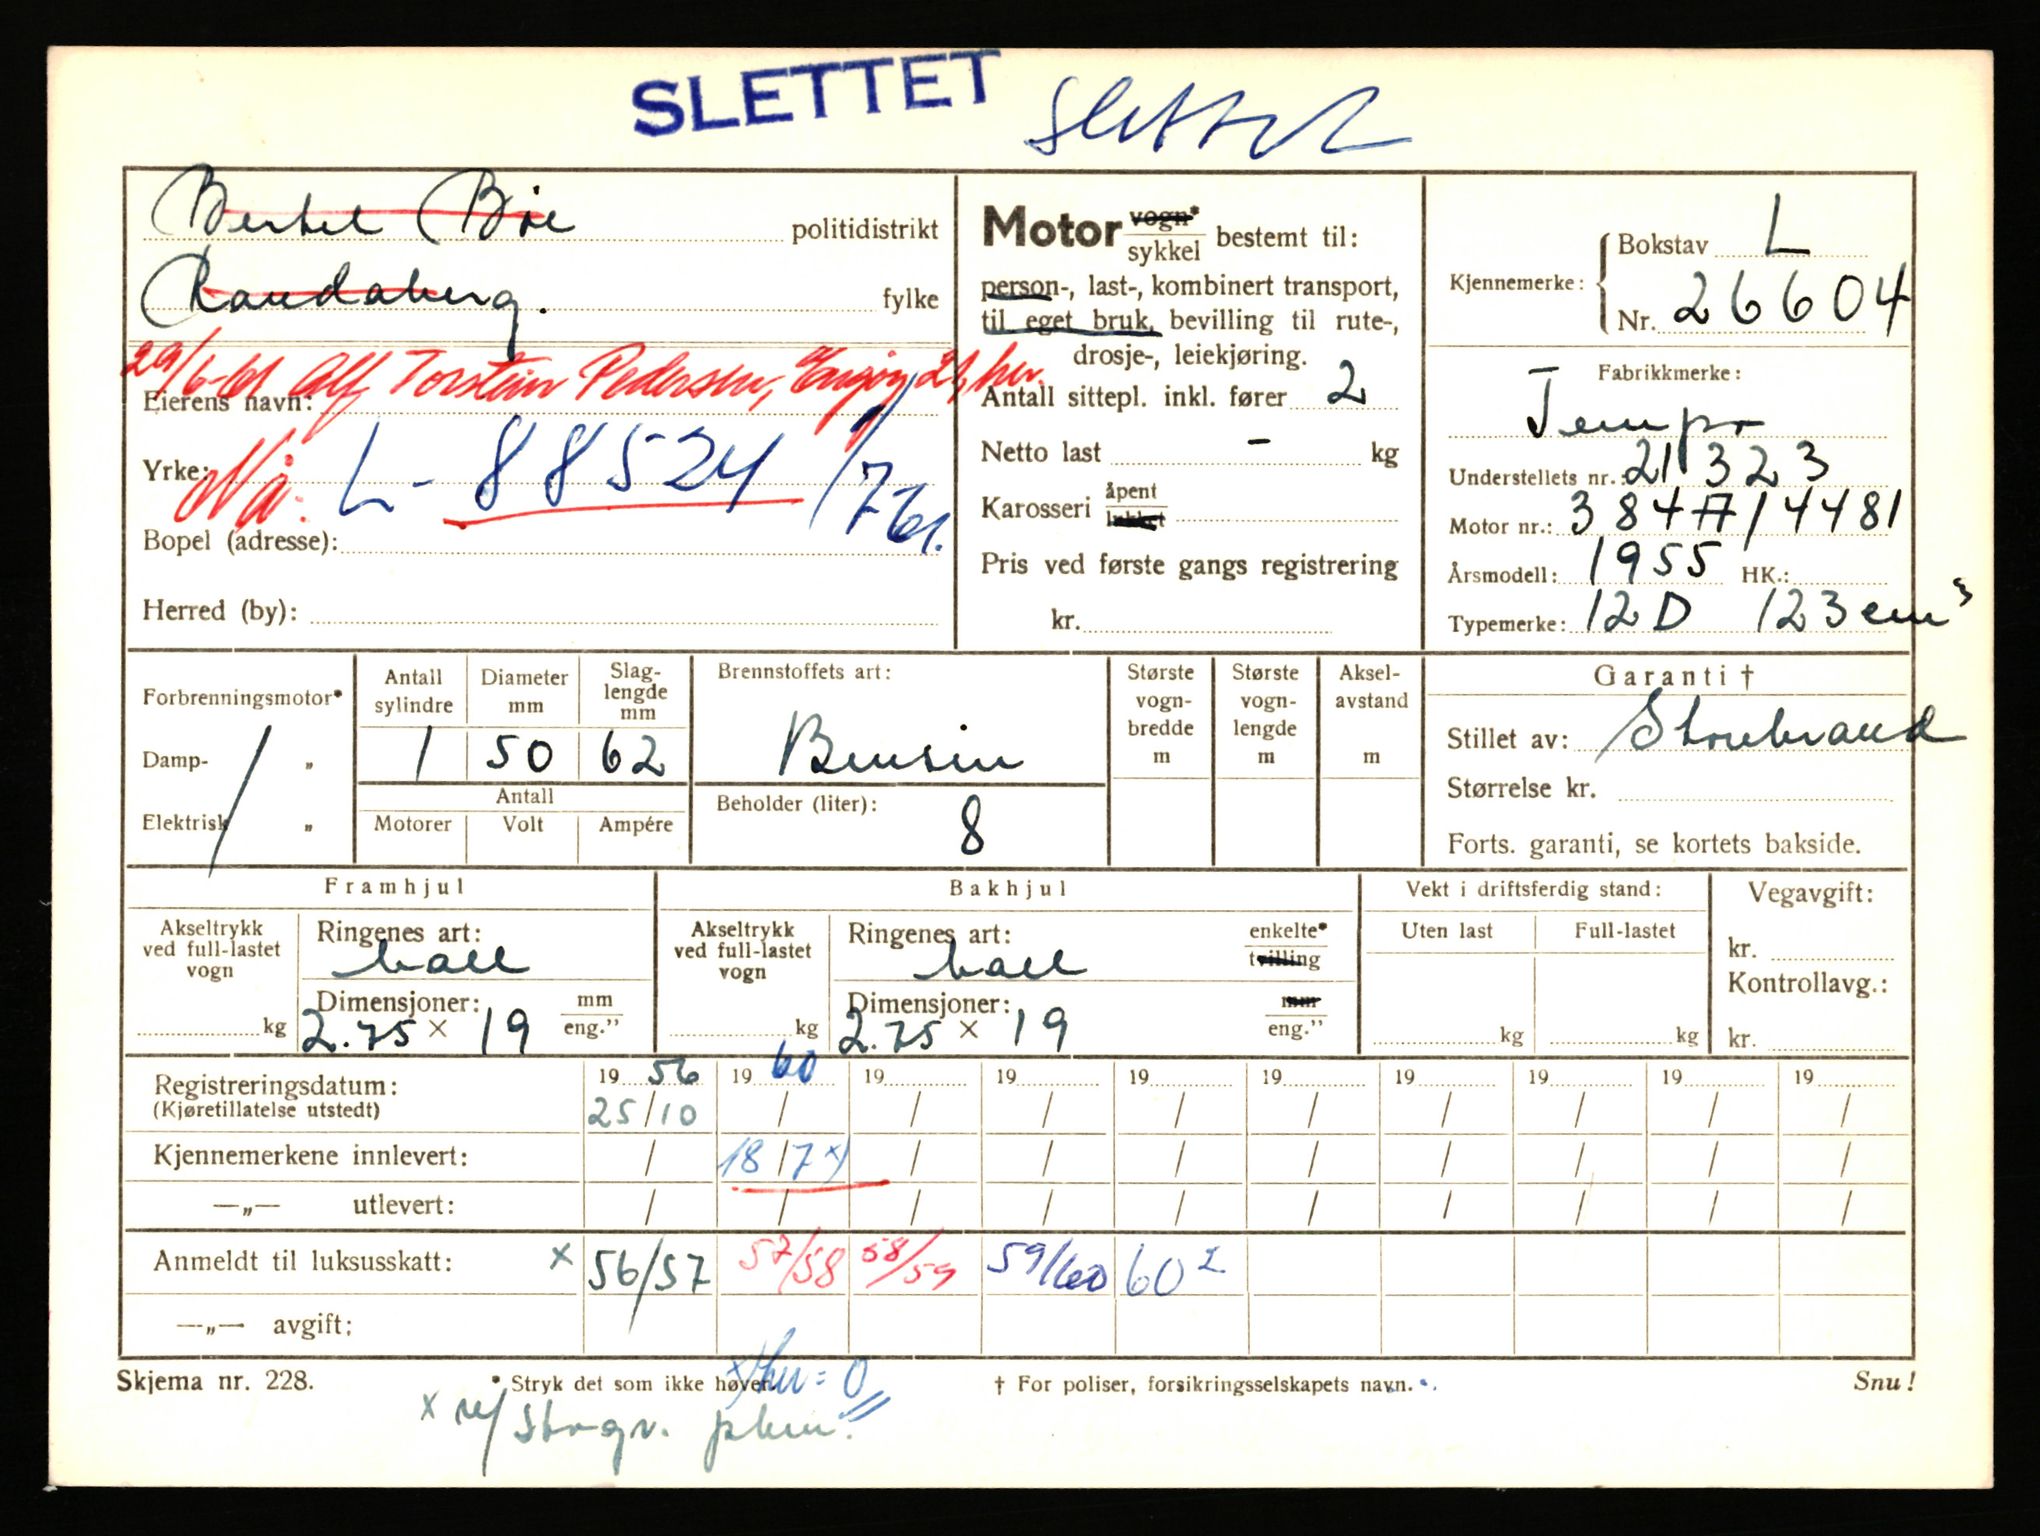 SLETTET Slettet
Bertel Bøe politidistrikt
Randaberg. fylke
29/6-61 Alf Torstein Pedersen, Engøy 21, her.
Eierens navn:
Yrke: Nå: L - 88524 1/7 61.
Bopel (adresse):
Herred (by):
Motor vogn* sykkel bestemt til:
person-, last-, kombinert transport,
til eget bruk, bevilling til rute-,
drosje-, leiekjøring.
Antall sittepl. inkl. fører 2
Netto last - kg
Karosseri åpent lukket
Pris ved første gangs registrering
kr.
Kjennemerke: Bokstav L
Nr. 26604
Fabrikkmerke:
Tempo
Understellets nr.: 21 323
Motor nr.: 384A/4481
Årsmodell: 1955 HK.:
Typemerke: 12 D 123 cm³
Forbrenningsmotor*
Damp- „
Elektrisk „
Antall sylindre Diameter mm Slag-lengde mm
1 50 62
Antall
Motorer Volt Ampére
Brennstoffets art:
Bensin
Beholder (liter):
8
Største vogn-bredde m
Største vogn-lengde m
Aksel-avstand m
Garanti †
Stillet av: Storebrand
Størrelse kr.
Forts. garanti, se kortets bakside.
Framhjul
Akseltrykk ved full-lastet vogn
kg
Ringenes art:
ball
Dimensjoner: mm
2.75 × 19 eng."
Bakhjul
Akseltrykk ved full-lastet vogn
kg
Ringenes art: enkelte*
ball tvilling
Dimensjoner: mm
2.75 × 19 eng."
Vekt i driftsferdig stand:
Uten last Full-lastet
kg kg
Vegavgift:
kr.
Kontrollavg.:
kr.
Registreringsdatum: 19 56 19 60 19 19 19 19 19 19 19 19
(Kjøretillatelse utstedt) 25/10 / / / / / / / / /
Kjennemerkene innlevert: / 18/7 x) / / / / / / / /
—„— utlevert: / / / / / / / / / /
Anmeldt til luksusskatt: x 56/57 57/58 58/59 59/60 60²
—„— avgift:
Skjema nr. 228. * Stryk det som ikke høver. x) = 0 † For poliser, forsikringsselskapets navn. Snu!
x